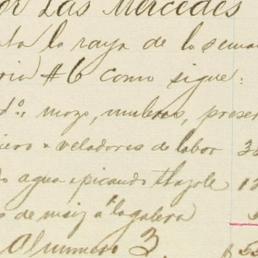 or Las Mercedes
la raya de la sema
#6 como sigue:
mozo, muleros, prese
veladores de labor 3
agua y picando tlazole 1
de maiz a la galera
alumnos 3. $